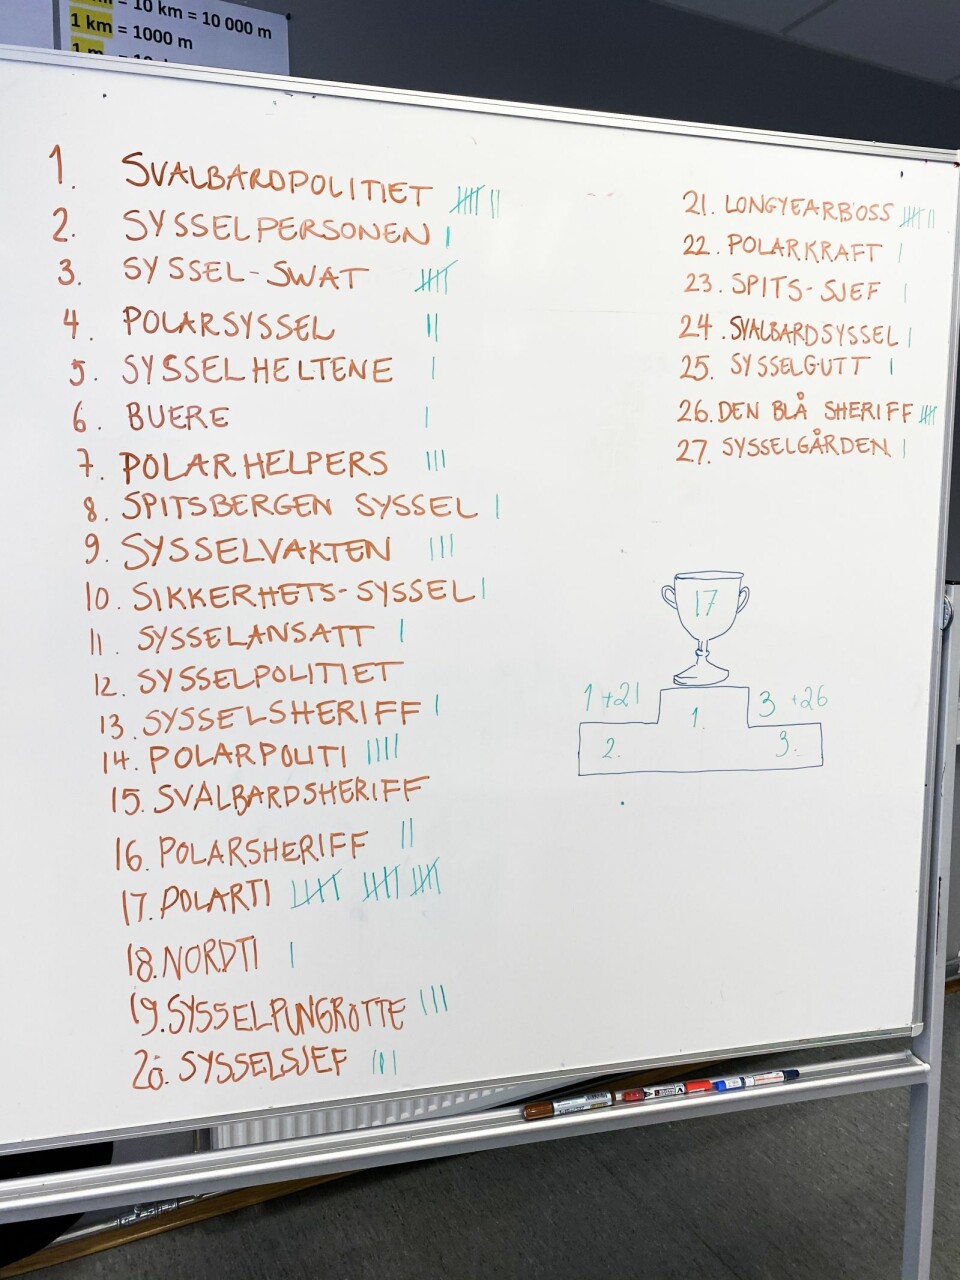 = 10 km = 10 000 m
1 km = 1000 m
1 m
1. SVALBARDPOLITIET
2. SYSSELPERSONEN
3. SYSSEL-SWAT
4. POLARSYSSEL
5. SYSSELHELTENE
6. BUERE
7. POLARHELPERS
8. SPITSBERGEN SYSSEL
9. SYSSELVAKTEN
10. SIKKERHETS-SYSSEL
11. SYSSELANSATT
12. SYSSELPOLITIET
13. SYSSELSHERIFF
14. POLARPOLITI
15. SVALBARDSHERIFF
16. POLARSHERIFF
17. POLARTI
18. NORDTI
19. SYSSELPUNGROTTE
20. SYSSELSJEF
21. LONGYEARBOSS
22. POLARKRAFT
23. SPITS-SJEF
24. SVALBARDSYSSEL
25. SYSSELGUTT
26. DEN BLÅ SHERIFF
27. SYSSELGÅRDEN
17
1+21
3 +26
1.
2.
3.